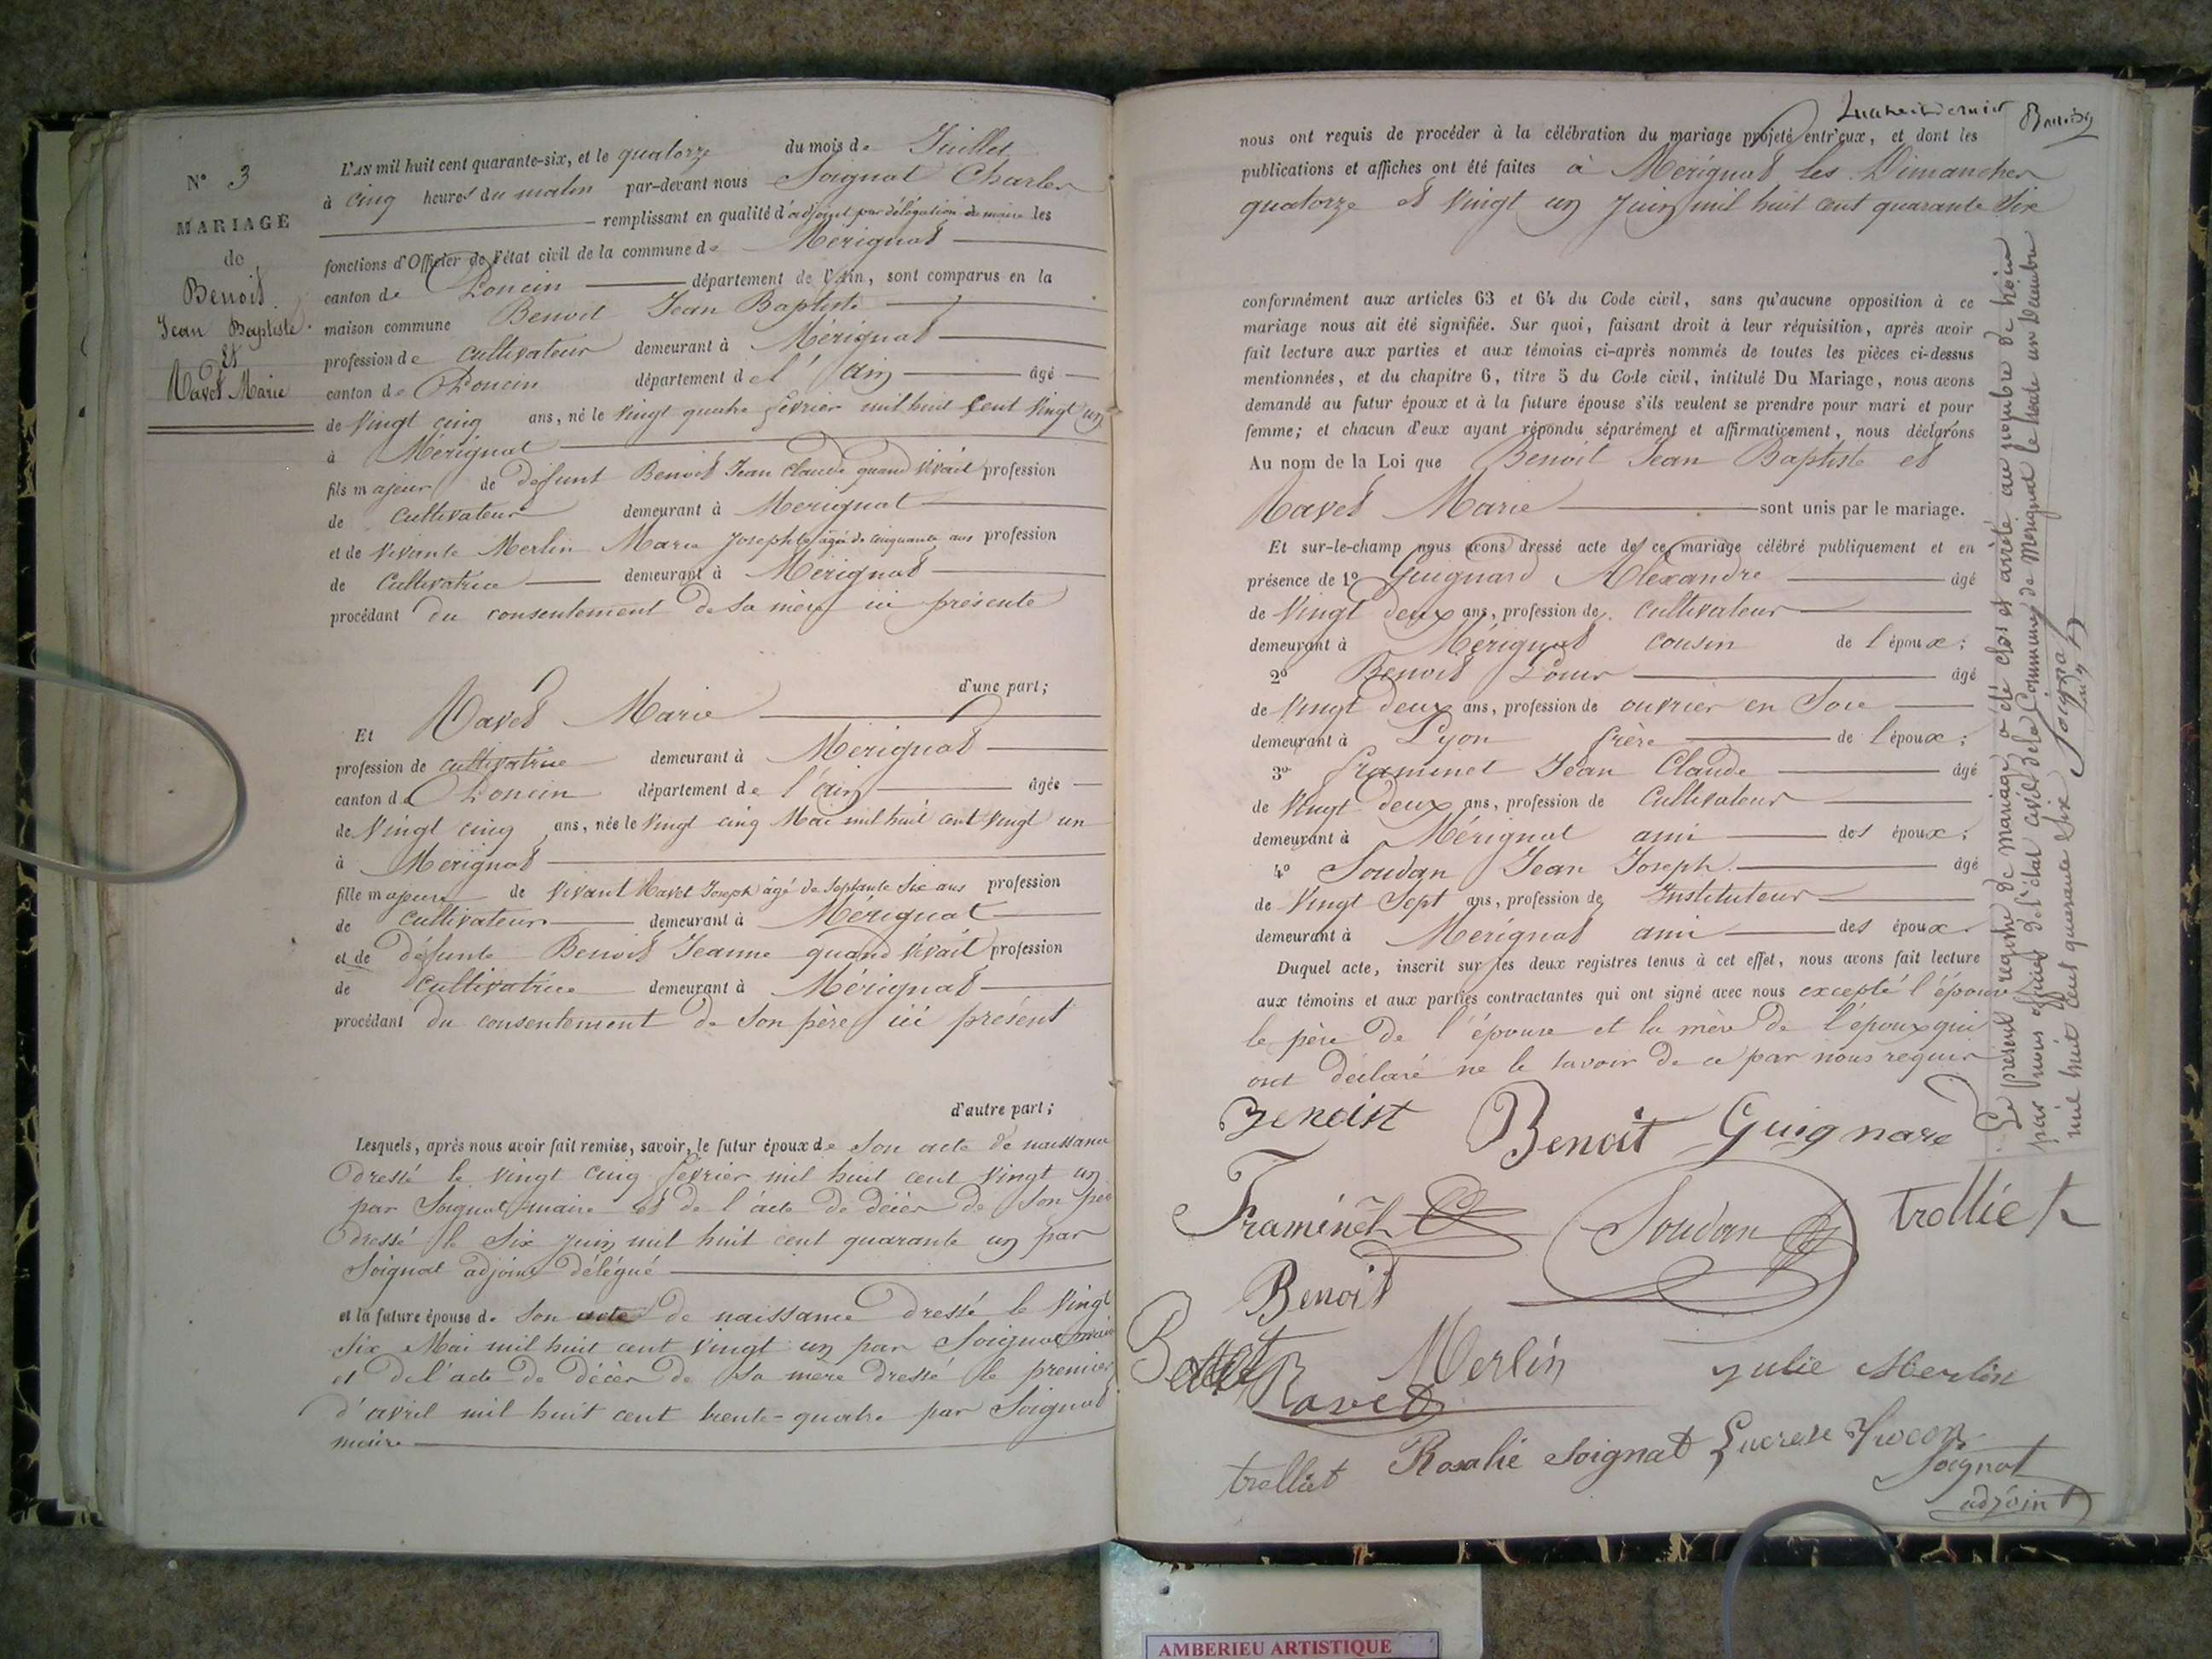 N° 3
MARIAGE
de
Benoit
Jean Baptiste
et
Ravet Marie
L'AN mil huit cent quarante-six, et le quatorze du mois de Juillet
à cinq heures du matin par-devant nous Soignat Charles
remplissant en qualité d'adjoint par délégation du maire les
fonctions d'Officier de l'état civil de la commune de Mérignat
canton de Poncin département de l'Ain, sont comparus en la
maison commune Benoit Jean Baptiste
profession de cultivateur demeurant à Mérignat
canton de Poncin département de l'ain âgé
de vingt cinq ans, né le vingt quatre fevrier mil huit cent vingt un
à Mérignat
fils majeur de défunt Benoit Jean Claude quand vivait profession
de cultivateur demeurant à Merignat
et de vivante Merlin Marie Josephte agée de cinquante ans profession
de Cultivatrice demeurant à Mérignat
procédant du consentement de sa mère ici présente
d'une part;
Et Ravet Marie
profession de cultivatrice demeurant à Merignat
canton de Poncin département de l'ain âgée
de vingt cinq ans, née le vingt cinq Mai mil huit cent vingt un
à Merignat
fille majeure de vivant Ravet Joseph âgé de septante six ans profession
de cultivateur demeurant à Mérignat
et de défunte Benoit Jeanne quand vivait profession
de cultivatrice demeurant à Mérignat
procédant du consentement de son père ici présent
d'autre part;
Lesquels, après nous avoir fait remise, savoir, le futur époux de son acte de naissance
dressé le vingt cinq fevrier mil huit cent vingt un
par Soignat maire et de l'acte de décès de son père
dressé le six juin mil huit cent quarante un par
Soignat adjoint délégué
et la future épouse de son acte de naissance dressé le vingt
six Mai mil huit cent vingt un par Soignat maire
et de l'acte de décès de sa mère dressé le premier
d'avril mil huit cent trente-quatre par Soignat
maire
nous ont requis de procéder à la célébration du mariage projeté entr'eux, et dont les
publications et affiches ont été faites à Mérignat les Dimanches
quatorze et vingt un juin mil huit cent quarante six
conformément aux articles 63 et 64 du Code civil, sans qu'aucune opposition à ce
mariage nous ait été signifiée. Sur quoi, faisant droit à leur réquisition, après avoir
fait lecture aux parties et aux témoins ci-après nommés de toutes les pièces ci-dessus
mentionnées, et du chapitre 6, titre 5 du Code civil, intitulé Du Mariage, nous avons
demandé au futur époux et à la future épouse s'ils veulent se prendre pour mari et pour
femme; et chacun d'eux ayant répondu séparément et affirmativement, nous déclarons
Au nom de la Loi que Benoit Jean Baptiste et
Ravet Marie sont unis par le mariage.
Et sur-le-champ nous avons dressé acte de ce mariage célébré publiquement et en
présence de 1° Guignard Alexandre âgé
de vingt deux ans, profession de cultivateur
demeurant à Mérignat cousin de l'époux;
2° Benoit Louis âgé
de vingt deux ans, profession de ouvrier en soie
demeurant à Lyon frère de l'époux;
3° framinet Jean Claude âgé
de vingt deux ans, profession de cultivateur
demeurant à Mérignat ami des époux;
4° Soudan Jean Joseph âgé
de vingt sept ans, profession de Instituteur
demeurant à Mérignat ami des époux
Duquel acte, inscrit sur les deux registres tenus à cet effet, nous avons fait lecture
aux témoins et aux parties contractantes qui ont signé avec nous excepté l'épouse
le père de l'épouse et la mère de l'époux qui
ont déclaré ne le savoir de ce par nous requis
Benoist Benoit Guignard
Framinet Soudan trolliet
Benoit
Merlin julie Merlin
Ravet
trolliet Rosalie Soignat Lucrese
Soignat
adjoint
Le présent registre de mariage a été clos et arrêté au nombre de trois
par nous officier de l'état civil de la Commune de Mérignat le trente un Decembre
mil huit cent quarante six Soignat
AMBERIEU ARTISTIQUE